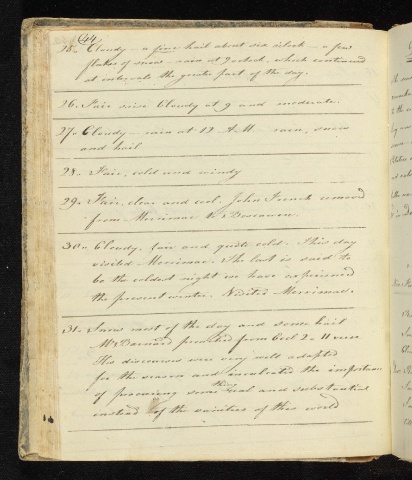 (44.
25. Cloudy - a fine hail about six o'clock - a few
flakes of snow - rain at 9 o'clock, which continued
at intervals the greater part of the day.
26. Fair rise Cloudy at 9 and moderate.
27. Cloudy - rain at 12 A.M. rain, snow
and hail
28. Fair, cold and windy
29. Fair, clear and cool. John French removed
from Merrimac to Boscawen.
30. Cloudy, fair and quite cold. This day
visited Merrimac. The last is said to
be the coldest night we have experienced
the present winter. Merrimac.
31. Snow most of the day and some hail
Mr Barnard preached from Eccl 2-11 verse
His discourses were very well adapted
for the season and inculcated the importance
of procuring some thing real and substantial
instead of the vanities of this world